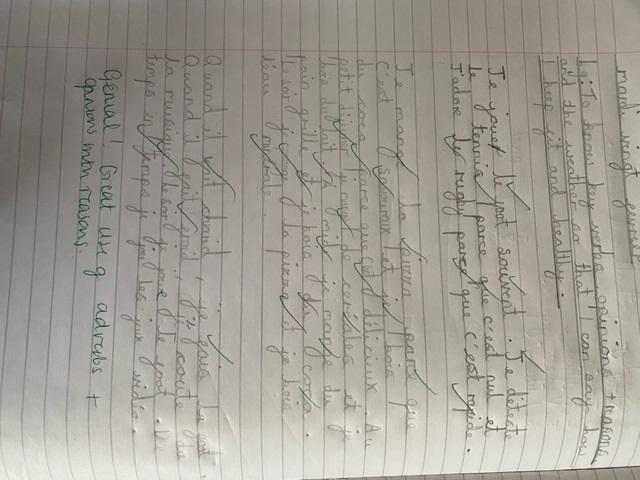 mardi vingt janvier
L.o: To know key verbs, opinions + reasons
and the weather so that I can say how
I keep fit and healthy.
Je joue le foot souvent. Je déteste
le tennis parce que c'est nul et
J'adore le rugby parce que c'est rapide.
Je mange la pizza parce que
c'est et je bois
du coca parce que c'est délicieux. Au
petit déjeuner je mange de céréales et je
bois du lait. À midi je mange du
pain grillé et je bois du coca.
Le soir je mange la pizza et je bois
l'eau minérale.
Quand il fait chaud, je joue le foot.
Quand il fait froid, j'écoute de
la musique. Le soir je joue le foot. De
temps en temps je joue les jeux vidéo.
Génial! Great use of adverbs +
opinions + reasons.